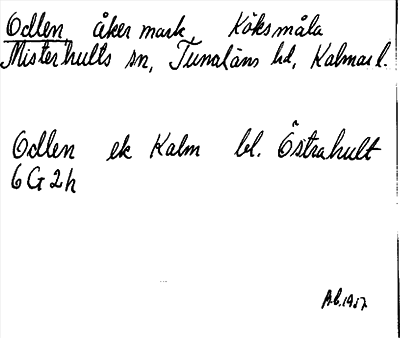 Odlen, åkermark, Köksmåla
Misterhults sn, Tunaläns hd, Kalmar l.
Odlen ek Kalm bl. Östrahult
6 G 2 h